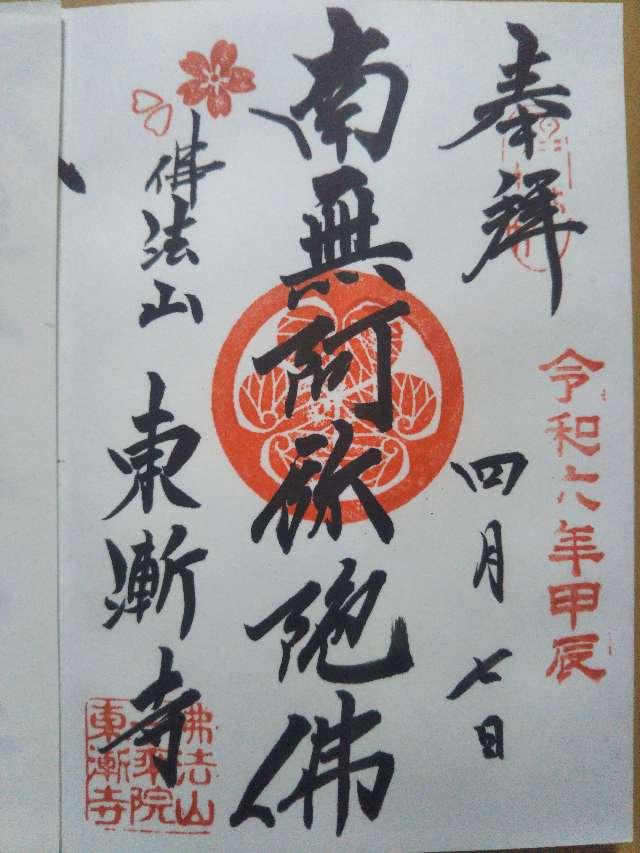 奉拜
令和六年甲辰
四月七日
南無阿弥陀佛
佛法山
東漸寺
佛法山
一乗院
東漸寺